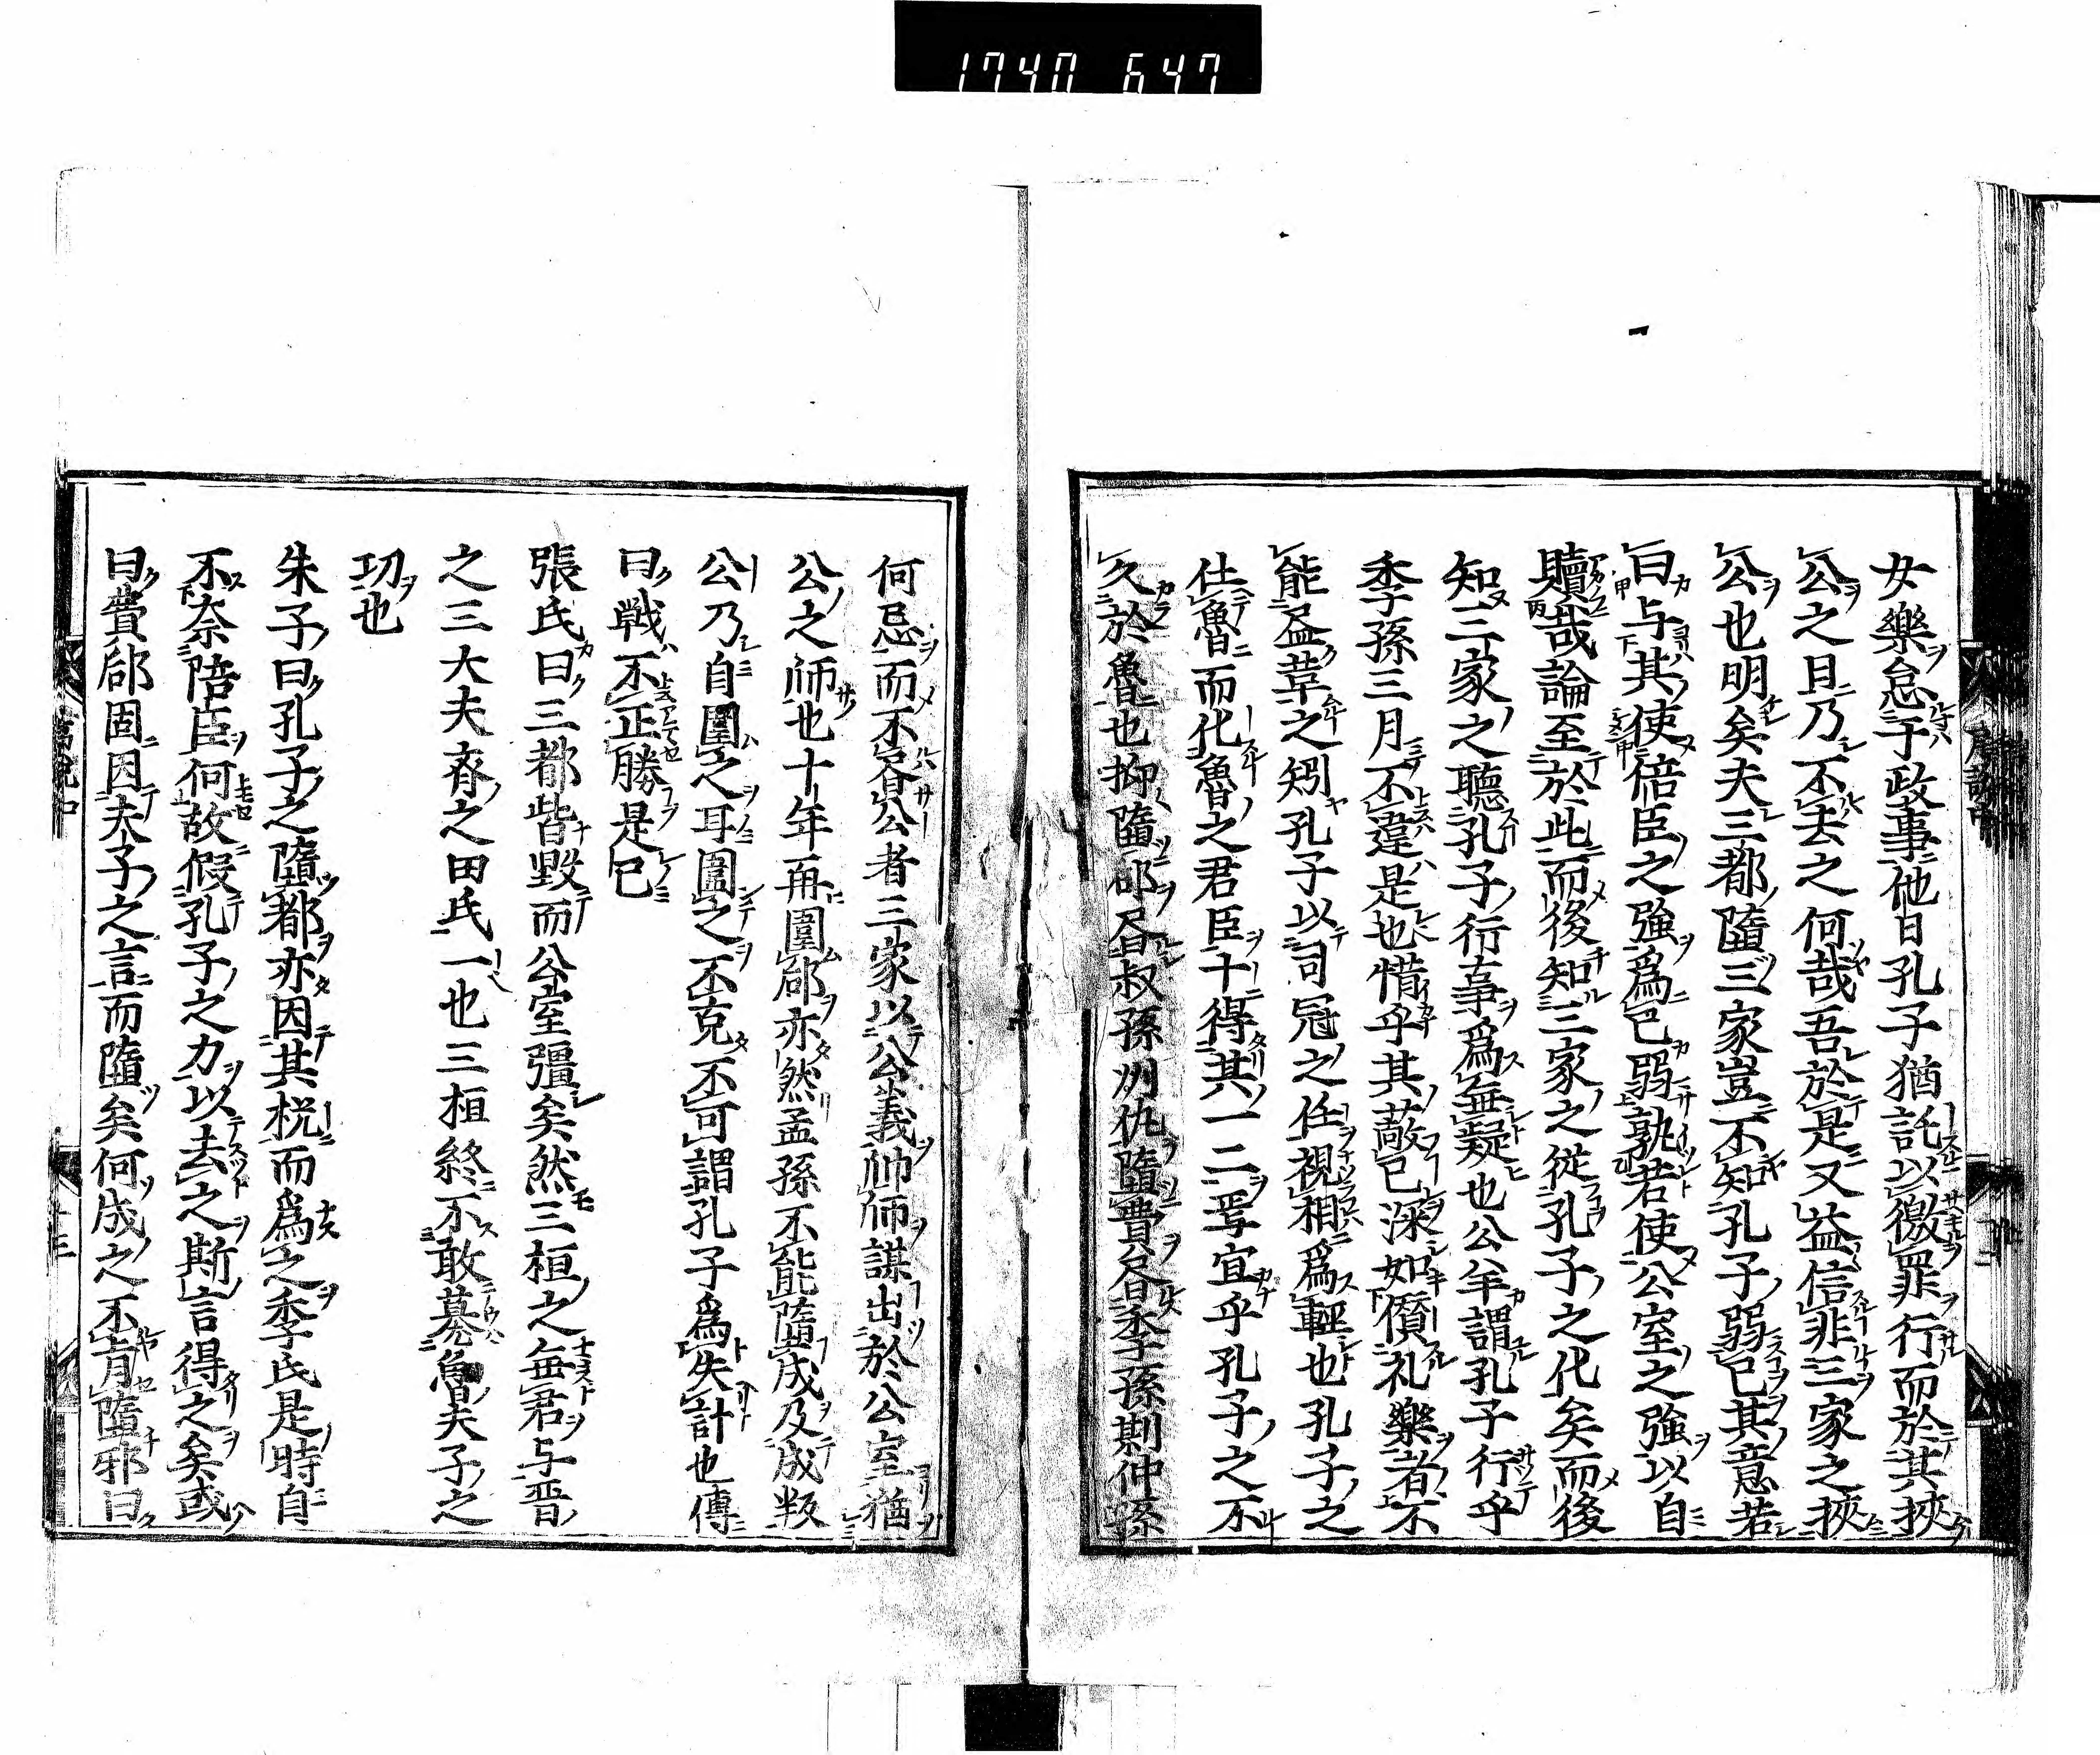 1740 647
女樂怠于政事他日孔子猶託以徼罪行而於其挾
公之日乃不去之何哉吾於是又益信非三家之挾
公也明矣夫三都墮三家豈不知孔子弱已其意若
曰与其使倍臣之強爲已弱孰若使公室之強以自
贖哉論至於此而後知三家之從孔子之化矣而後
知三家之聽孔子行事爲無疑也公羊謂孔子行乎
季孫三月不違是也惜乎其蔽已深如償礼樂者不
能盡革之矧孔子以司冦之任視相爲輕也孔子之
仕魯而化魯之君臣十得其一二焉宜乎孔子之不
久於魯也抑墮郈者叔孫州仇墮費者季孫斯仲孫
何忌而不書公者三家以公義帥師謀出於公室猶
公之師也十年再圍郈亦然孟孫不能墮成及成叛
公乃自圍之耳圍之不克不可謂孔子爲失計也傳
曰戦不正勝是已
張氏曰三都皆毀而公室彊矣然三桓之無君与晋
之三大夫齊之田氏一也三桓終不敢墓魯夫子之
功也
朱子曰孔子之墮都亦因其梲而爲之季氏是時自
不奈陪臣何故假孔子之力以去之斯言得之矣或
曰費郈固因夫子之言而墮矣何成之不肯墮邪曰